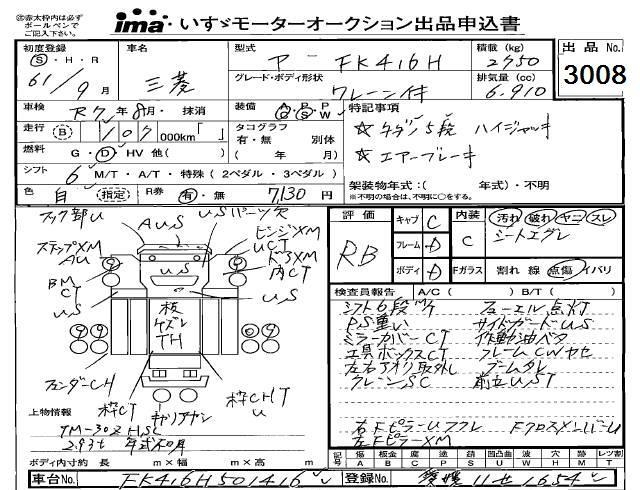 ㊟赤太枠内は必ず
ボールペンで
ご記入下さい。
ima・いすゞモーターオークション出品申込書
初度登録 Ⓢ・H・R 61年9月
車名 三菱
型式 P-FK416H
積載(kg) 2750
出品No. 3008
グレード・ボディ形状 クレーン付
排気量(cc) 6.910
車検 R7年8月・抹消
装備 A P P C S W
特記事項
走行 Ⓑ 107 000km「 」
タコグラフ 有・無 別体
( 年 月)
☆タダノ5段 ハイジャッキ
☆エアーブレーキ
燃料 G・Ⓓ・HV他( )
シフト 6 M/T・A/T・特殊(2ペダル・3ペダル)
架装物年式:( 年式)・不明
※不明の場合は、不明に○をする。
色 白 指定 R券 有・無 7,130円
フック部U AUS USパーツ欠
ステップXM AU
ヒンジXM
UCT
ドアXM
内CT
BM
CT
US
US
US
板
ケズレ
TH
フェンダーCH
枠CT
キャリアナシ
枠CHT
U
上物情報
TM-30Z HSC
2.93t 年式不明
ボディ内寸約 長 m×幅 m×高 m
評価 RB
キャブ C
フレーム D
ボディ D
内装 C
汚れ 破れ ヤニ スレ
シートエグレ
Fガラス 割れ 線 点傷 イバリ
検査員報告 A/C( ) B/T( )
シフト6段M/T フューエル点灯
PS重い サイドガードUS
ミラーカバーCT 作動油ベタ
工具ボックスCT フレームCWヤセ
左右アオリ取外し ブームタレ
クレーンSC 前立UST
右FピラーUフクレ FクロスメンバーU
左FピラーXM
記号 傷A 板金B 腐C 塗P 錆S 凹凸曲U 波W 穴H 跡M レツ割T
車台No. FK416H501416
登録No. 愛媛11せ1654